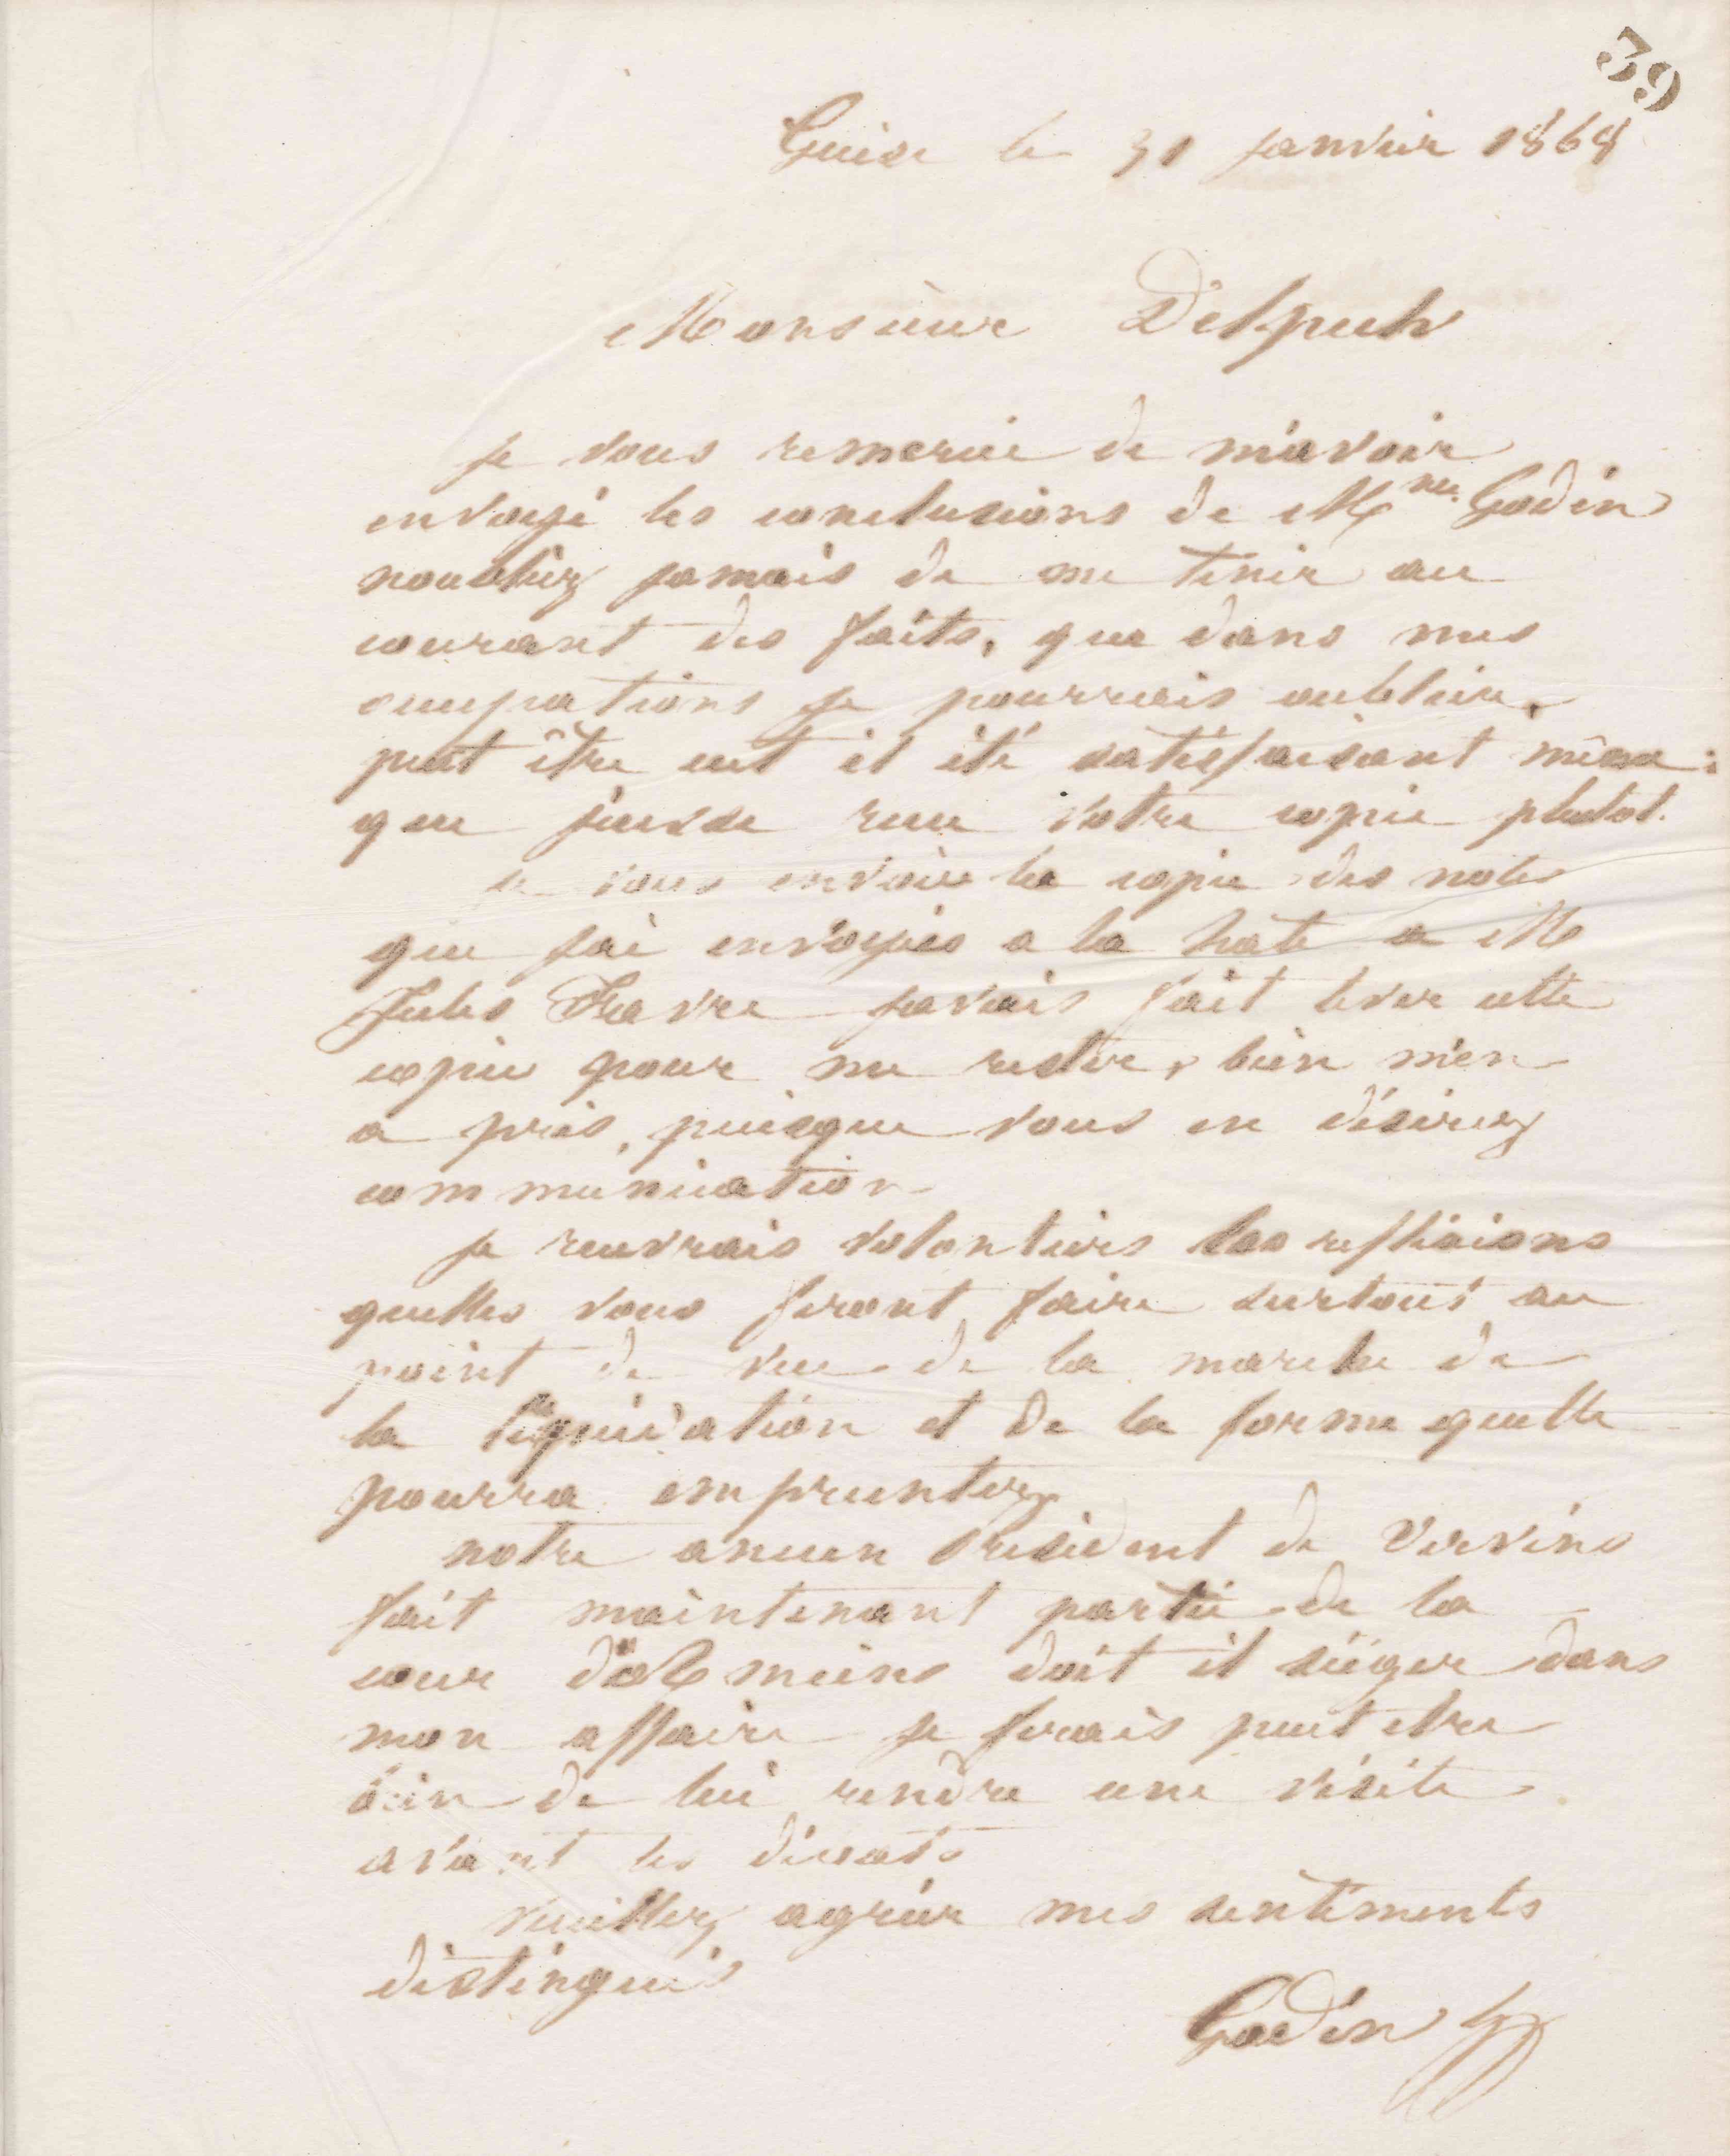 39
Guise le 31 janvier 1868
Monsieur Delpech
je vous remercie de m'avoir
envoyé les conclusions de Mme Godin
noubliez jamais de me tenir au
courant des faits, que dans mes
occupations je pourrais oublier,
peut être eut il été satisfaisant même
que jeusse recu votre copie plutot.
je vous envoie la copie des notes
que jai envoyées a la hate a M
Jules Favre javais fait lever cette
copie pour me rester, bien m'en
a pris, puisque vous en désirez
communication
je recevrais volontiers les reflexions
quelles vous feront faire surtout au
point de vue de la marche de
la liquidation et de la forme quelle
pourra emprunter
notre ancien President de Vervins
fait maintenant partie de la
cour d'Amiens doit il siéger dans
mon affaire je ferais peut etre
bien de lui rendre une visite
avant les débats
veuillez agréer mes sentiments
distingués
Godin